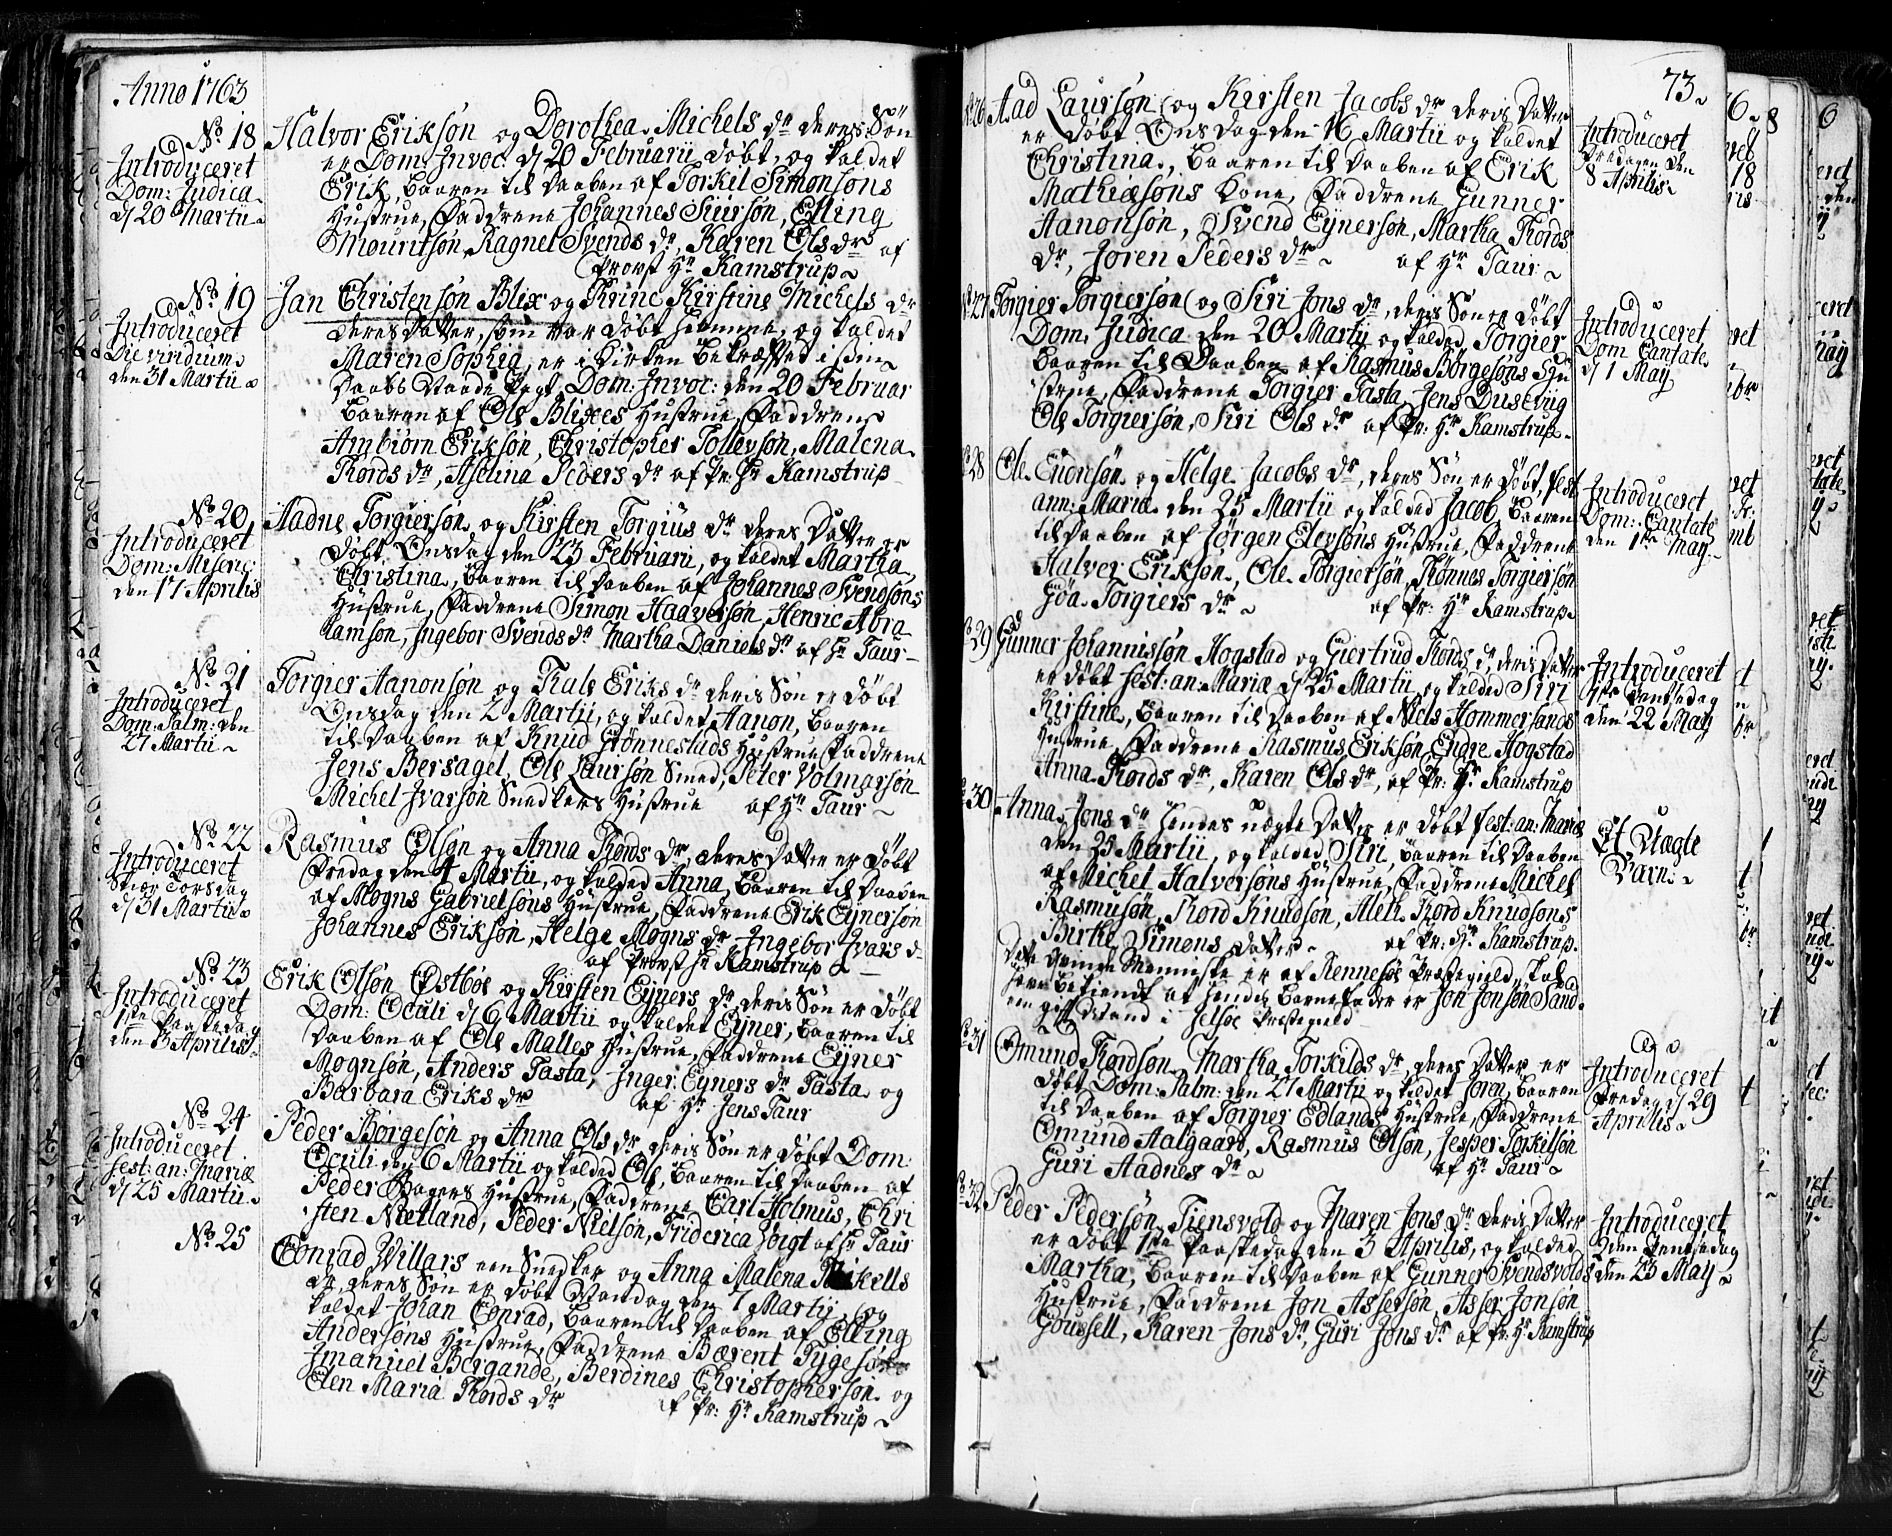 Anno 1763
No 18
Introduceret
Dom: Judica
d/ 20 Martii
Halvor Erikson og Dorothea Michels dr deres Søn
er Dom: Invoc: d/ 20 Februarii døbt, og kaldet
Erik, baaren til daaben af Torkel Simonsøns
Hustrue, Faddrene Johannes Siursøn, Elling
Mouritsøn, Ragnel Svends dr, Karen Ols dr af
Provst Hr Kamstrup
No 19
Introduceret
Die viridium
den 31 Martii
Jan Christensøn Blix og Trine Kirstine Michels dr
deres Datter, som var døbt hiemme, og kaldet
Maren Sophia, er i Kirken bekræftet i sin
Daabs Naade Pagt, Dom: Invoc: den 20 Februar
baaren af Ole Blixes Hustrue, Faddrene
Ambiørn Eriksøn, Christopher Tollevsøn, Malena
Thords dr, Aselina Peders dr af Pr: Hr Kamstrup
No 20
Introduceret
Dom: Miseric:
den 17 Aprilis
Aadne Torgiersøn og Kirsten Torgiüs dr deres Datter er
døbt Onsdag den 23 Februarii, og kaldet Martha
Christina, baaren til daaben af Johannes Svendsøns
Hustrue, Faddrene Simon Haaversøn, Henric Abra
hamsøn, Ingebor Svends dr Martha Daniels dr af Hr Taur
No 21
Introduceret
Dom: Palm: den
27 Martii
Torgier Aanonsøn og Thale Eriks dr deris Søn er døbt
Onsdag den 2 Martii, og kaldet Aanon, baaren
til daaben af Knud Grønnestads Hustrue, Faddrene
Jens Bersagel, Ole Laursøn Smed, Peter Volmarsøn
Michel Ivarsøn Snedkers Hustrue af Hr Taur
No 22
Introduceret
Skiær Torsdag
d/ 31 Martii
Rasmus Olsøn og Anna Thords dr, deres Datter er døbt
Fredag den 4 Martii, og kaldet Anna, baaren til daaben
af Mogns Gabrielsøns Hustrue, Faddrene Erik Eynersøn
Johannes Eriksøn, Helge Mogns dr Ingebor Ivars dr
af Provst Hr Kamstrup
No 23
Introduceret
1ste Paaskedag
den 3 Aprilis
Erik Olsøn Østbøe og Kirsten Eyners dr, deris Søn er døbt
Dom: Oculi d/ 6 Martii og kaldet Eyner, baaren til
daaben af Ole Malles Hustrue, Faddrene Eyner
Mognsøn, Anders Tasta, Inger Eyners dr Tasta og
Barbara Eriks dr af Hr Jens Taur
No 24
Introduceret
fest: an: Mariæ
d/ 25 Martii
Peder Børgesøn og Anna Ols dr, deris Søn er døbt Dom:
Oculi den 6 Martii og kaldet Ole, baaren til daaben af
Peder Bagers Hustrue, Faddrene Carl Holmus, Chri
sten Nætland, Peder Nielsøn, Friderica Voigt af Hr Taur
No 25
Conrad Willars een Snedker og Anna Malena Mikells
dr, deres Søn er døbt Mandag den 7 Martii, og
kaldet Johan Conrad, baaren til daaben af Elling
Andersøns Hustrue, Faddrene Bærent Tygesøn
Imanuel Bergande, Berdines Christophersøn og
Elen Maria Thords dr af Pr: Hr Kamstrup
73
No 26
Aad Laursøn og Kirsten Jacobs dr deris Datter
er døbt Onsdag den 16 Martii og kaldet
Christina, baaren til daaben af Erik
Mathiæsøns Kone, Faddrene Gunner
Aanonsøn, Svend Eynersøn, Martha Thords
dr, Joren Peders dr af Hr Taur
Introduceret
Fredagen den
8 Aprilis
No 27
Torgier Torgiersøn og Siri Jons dr, deris Søn er døbt
Dom: Judica den 20 Martii og kaldet Torgier
baaren til Daaben af Rasmus Børgesøns Hu
strue, Faddrene Torgier Tasta, Jens Dusevig
Ole Torgiersøn, Siri Ols dr af Pr: Hr Kamstrup
Introduceret
Dom Cantate
d/ 1 May
No 28
Ole Enonsøn og Helge Jacobs dr, deris Søn er døbt, fest:
ann: Mariæ den 25 Martii og kaldet Jacob, baaren
til daaben af Jørgen Elersøns Hustrue, Faddrene
Halver Eriksøn, Ole Torgiersøn, Thønnes Torgiersøn
Gøa Torgiers dr af Pr: Hr Kamstrup
Introduceret
Dom: Cantate
den 1ste May
No 29
Gunner Johannissøn Hogstad og Giertrud Thords dr, deris Datter
er døbt fest: an: Mariæ d/ 25 Martii og kaldet Siri
Kirstine, baaren til daaben af Niels Hommersands
Hustrue, Faddrene Rasmus Eriksøn, Endre Hogstad
Anna Thords dr, Karen Ols dr, af Pr: Hr Kamstrup
Introduceret
1ste Pentsedag
den 22 May
No 30
Anna Jons dr hendes uægte Datter er døbt fest: an: Mariæ
den 25 Martii, og kaldet Siri, baaren til daaben
af Michel Halversøns Hustrue, Faddrene Michel
Rasmusøn, Thord Knudsøn, Aleth Thord Knudsøns
Birthe Simons Datter af Pr: Hr Kamstrup.
Dette Qvinde Menniske er af Rennesøe Præstegield, skal
have bekiendt at hendes Barnefader er Jon Jonsøn Sand
een gift Mand i Jelsøe Præstegield
Et Uægte
Barn:
No 31
Omund Thordsøn, Martha Torkilds dr, deres Datter er
døbt Dom: Palm: den 27 Martii og kaldet Joren, baaren
til daaben af Torgier Edlands Hustrue, Faddrene
Omund Aalgaard, Rasmus Olsøn, Jesper Torkilsøn
Guri Aadnes dr af Hr Taur
Introduceret
Fredag d/ 29
Aprilis
No 32
Peder Pedersøn Tiensvold og Maren Jons dr deris Datter
er døbt 1ste Paaskedag den 3 Aprilis, og kaldet
Martha, baaren til daaben af Gunner Svendsvolds
Hustrue, Faddrene Jon Assersøn, Asser Jonsøn
Goussell, Karen Jons dr, Guri Jons dr af Pr: Hr Kamstrup
Introduceret
2den Pentsedag
den 23 May